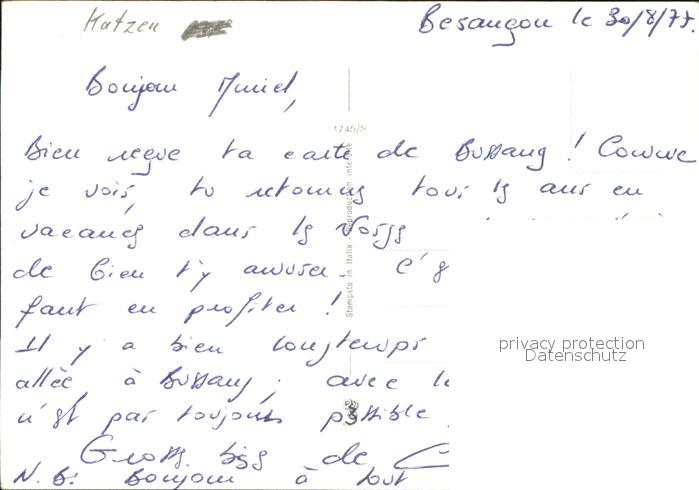 Katzen
Besançon le 30/8/77.
Bonjour Muriel,
1745/5
Bien reçue ta carte de Bussang ! Comme
je vois, tu retournes tous les ans en
vacances dans les Vosges
de bien t'y amuser. C'
faut en profiter !
Il y a bien longtemps
allée à Bussang ; avec
n'est pas toujours possible
Gross bises de
N.B: Bonjour à tout
Stampato in Italia - Reproduction
privacy protection
Datenschutz